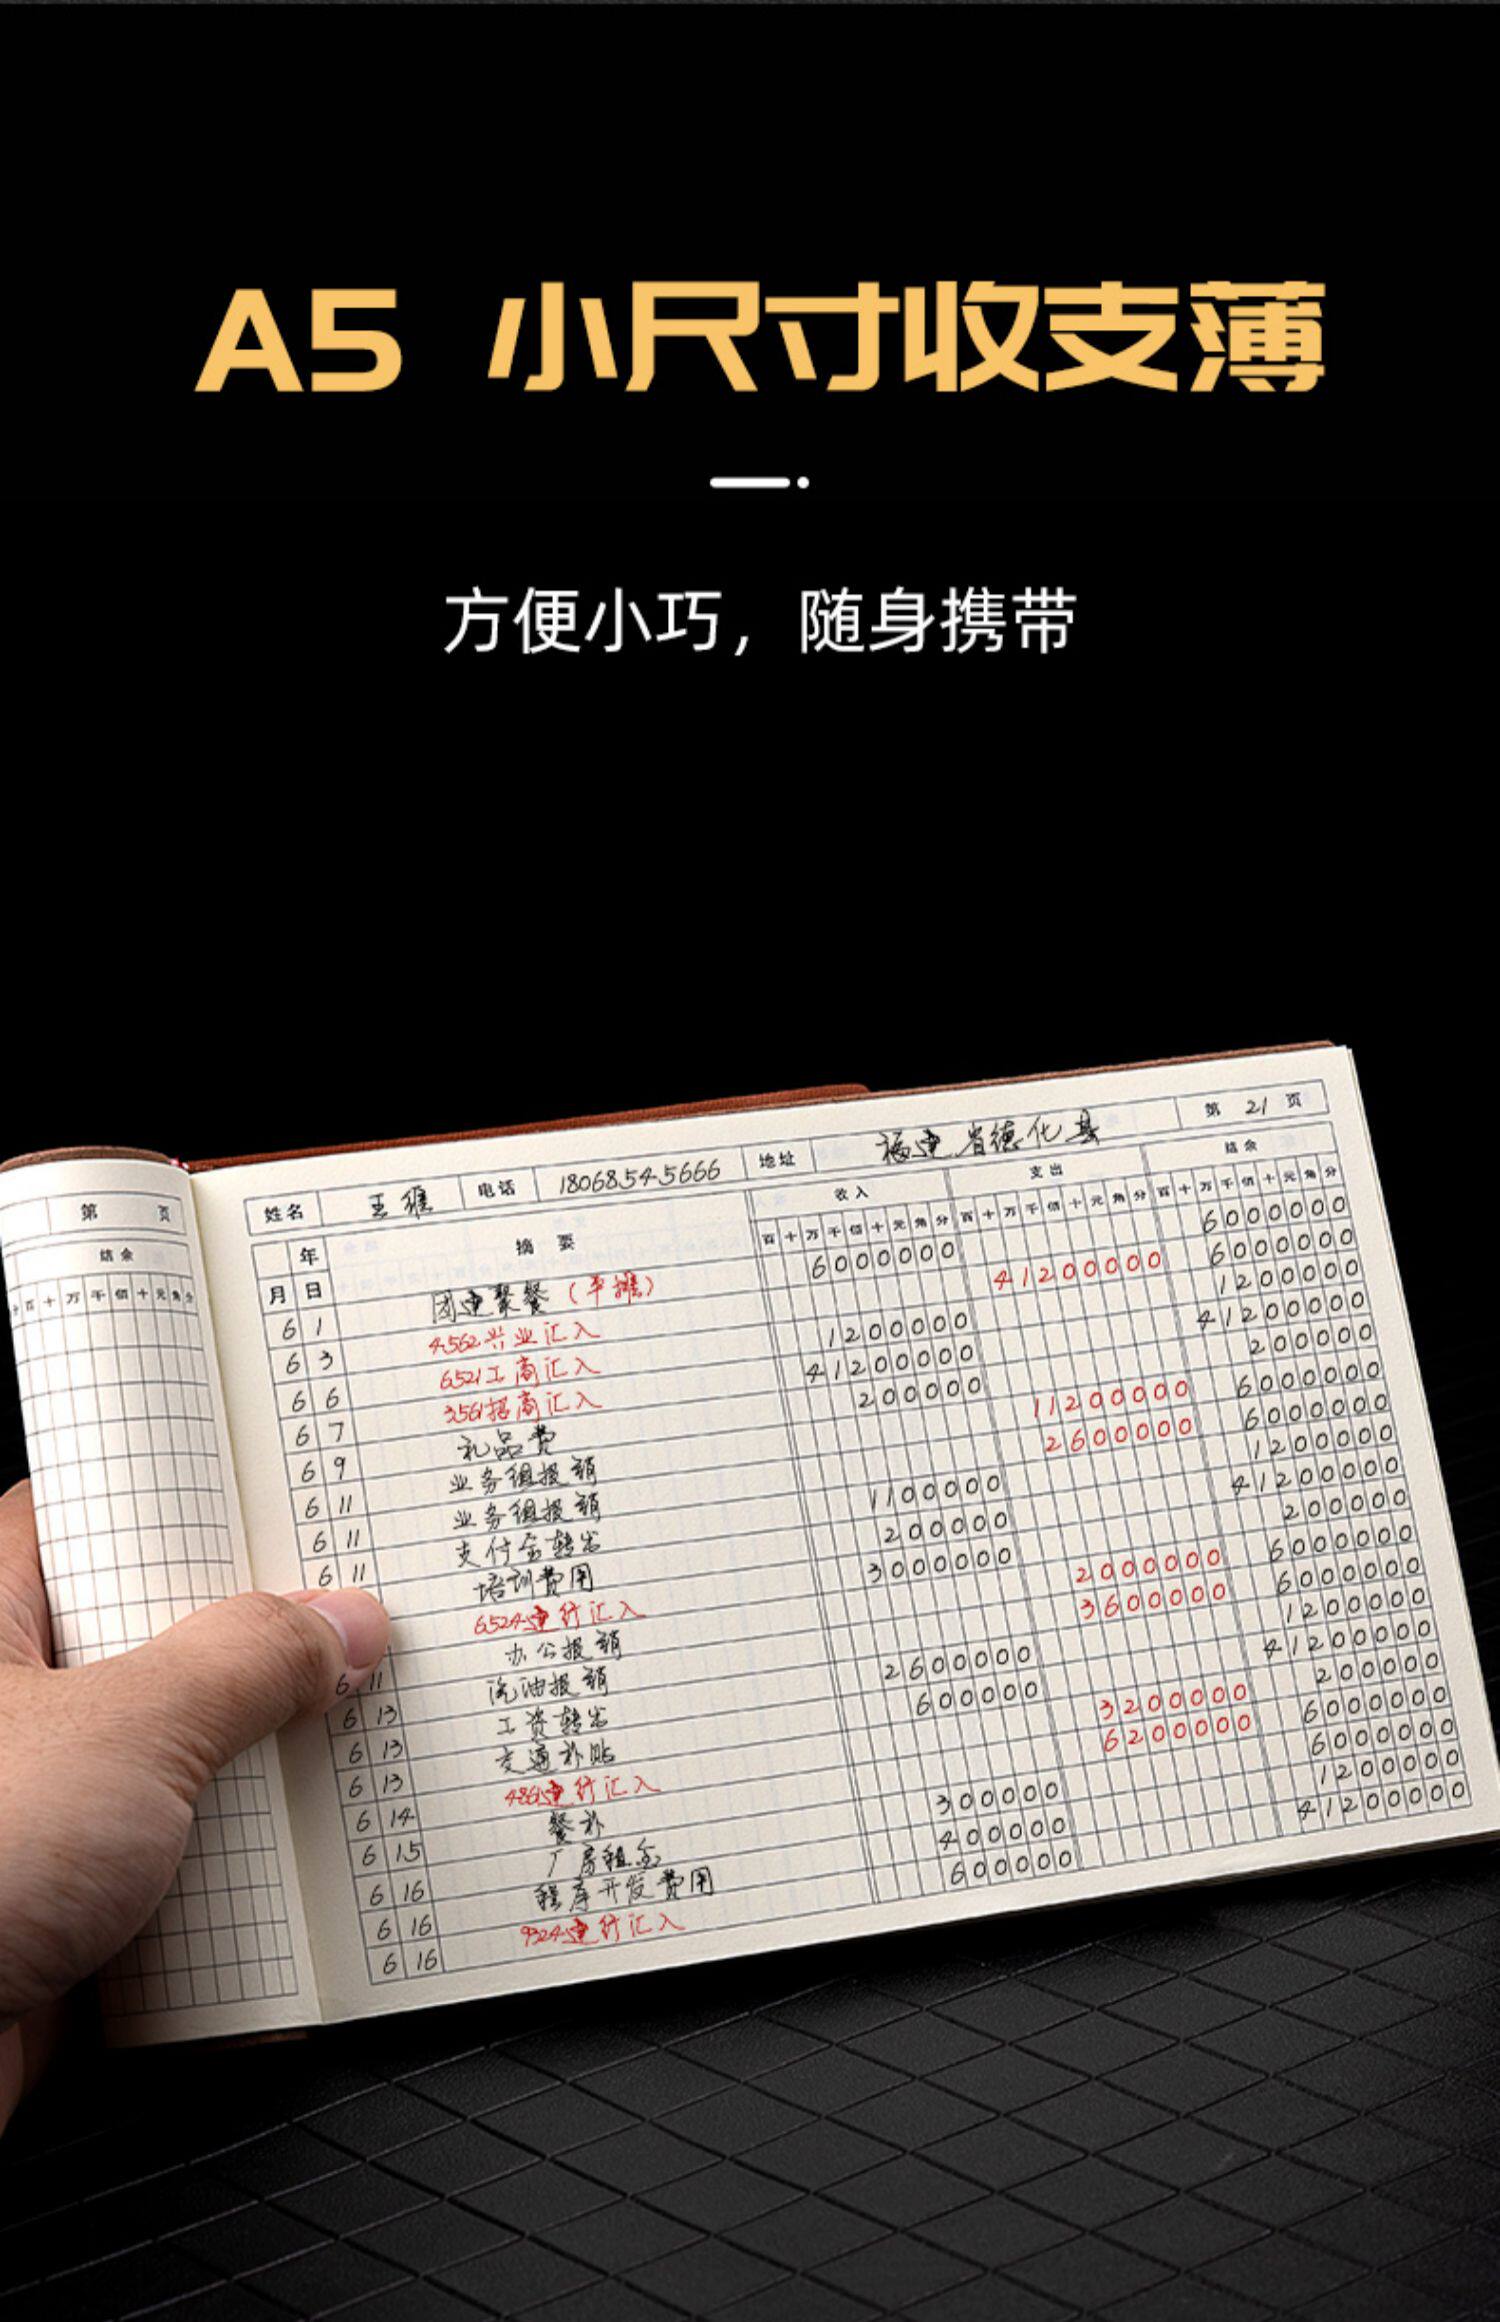 A5 小尺寸收支薄
方便小巧，随身携带
第 页
结余
十 百 十 万 千 佰 十 元 角 分
姓名 王 电话 18068545666 地址 福建省德化县 第 21 页
年 摘要 收入 支出 结余
月 日 百 十 万 千 佰 十 元 角 分 百 十 万 千 佰 十 元 角 分 百 十 万 千 佰 十 元 角 分
6 1 团建聚餐 6000000 6000000
6 3 4562兴业汇入 41200000 6000000
6 6 6521工商汇入 1200000 1200000
6 7 3561招商汇入 41200000 41200000
6 9 礼品费 200000 200000
6 11 业务组报销 11200000 6000000
6 11 业务组报销 2600000 6000000
6 11 支付金转出 1100000 1200000
培训费用 200000 41200000
6524建行汇入 3000000 200000
6 11 办公报销 2000000 6000000
6 13 汽油报销 3600000 6000000
6 13 工资转出 2600000 1200000
6 13 交通补贴 600000 41200000
6 14 建行汇入 3200000 200000
6 15 餐补 6200000 6000000
6 16 厂房租金 300000 6000000
6 16 程序开发费用 400000 1200000
6 16 9324建行汇入 600000 41200000